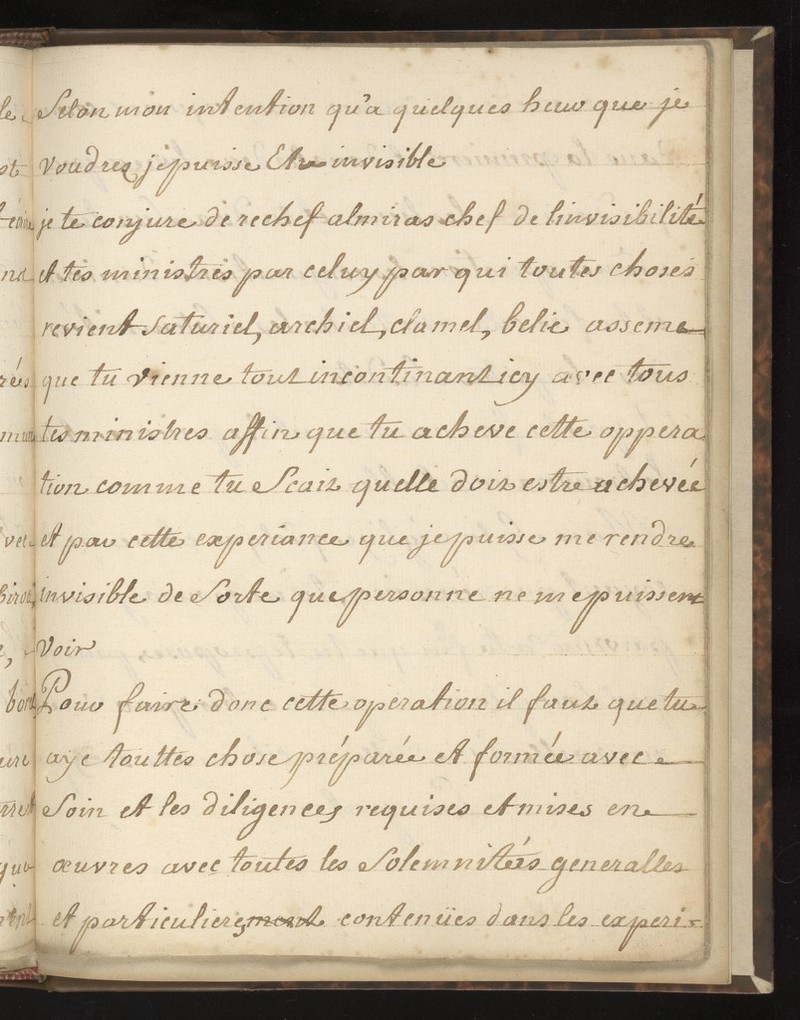 Selon mon intention qu'a quelques heur que je
voudres je puisse Etre invisible
je te conjure derechef almiras chef de linvisibilité
et tes ministres par celuy par qui toutes choses
revient saturiel, archiel, clamel, belie asseme
que tu vienne tout incontinant icy avec tous
tes ministres affin que tu acheve cette oppera
tion comme tu Scait quelle doit estre achevée
et par cette experiance que je puisse me rendre
invisible de Sorte que personne ne me puissent
Voir
Pour faire donc cette operation il faut que tu
aye touttes chose préparée et formée avec
Soin et les diligences requises et mises en
œuvres avec toutes les Solemnitées generalles
et particulierement contenües dans les experi-